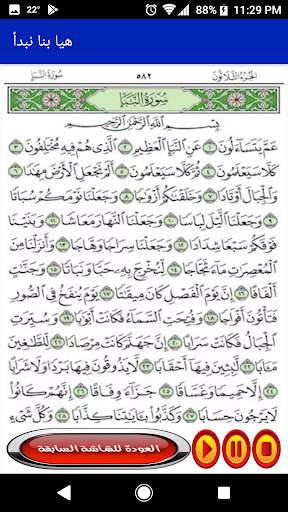 22° 11:29 PM
هيا بنا نبدأ
سُورَةُ النَّبَإِ ٥٨٢ الجُزْءُ الثَّلَاثُونَ
سُورَةُ النَّبَإِ
بِسْمِ اللَّهِ الرَّحْمَٰنِ الرَّحِيمِ
عَمَّ يَتَسَاءَلُونَ ١ عَنِ النَّبَإِ الْعَظِيمِ ٢ الَّذِي هُمْ فِيهِ مُخْتَلِفُونَ ٣
كَلَّا سَيَعْلَمُونَ ٤ ثُمَّ كَلَّا سَيَعْلَمُونَ ٥ أَلَمْ نَجْعَلِ الْأَرْضَ مِهَٰدًا ٦
وَالْجِبَالَ أَوْتَادًا ٧ وَخَلَقْنَٰكُمْ أَزْوَٰجًا ٨ وَجَعَلْنَا نَوْمَكُمْ سُبَاتًا
٩ وَجَعَلْنَا الَّيْلَ لِبَاسًا ١٠ وَجَعَلْنَا النَّهَارَ مَعَاشًا ١١ وَبَنَيْنَا
فَوْقَكُمْ سَبْعًا شِدَادًا ١٢ وَجَعَلْنَا سِرَاجًا وَهَّاجًا ١٣ وَأَنزَلْنَا مِنَ
الْمُعْصِرَٰتِ مَاءً ثَجَّاجًا ١٤ لِّنُخْرِجَ بِهِ حَبًّا وَنَبَاتًا ١٥ وَجَنَّٰتٍ
أَلْفَافًا ١٦ إِنَّ يَوْمَ الْفَصْلِ كَانَ مِيقَٰتًا ١٧ يَوْمَ يُنفَخُ فِي الصُّورِ
فَتَأْتُونَ أَفْوَاجًا ١٨ وَفُتِحَتِ السَّمَاءُ فَكَانَتْ أَبْوَٰبًا ١٩ وَسُيِّرَتِ
الْجِبَالُ فَكَانَتْ سَرَابًا ٢٠ إِنَّ جَهَنَّمَ كَانَتْ مِرْصَادًا ٢١ لِّلطَّٰغِينَ
مَـَٔابًا ٢٢ لَّٰبِثِينَ فِيهَا أَحْقَابًا ٢٣ لَّا يَذُوقُونَ فِيهَا بَرْدًا وَلَا شَرَابًا
٢٤ إِلَّا حَمِيمًا وَغَسَّاقًا ٢٥ جَزَاءً وِفَاقًا ٢٦ إِنَّهُمْ كَانُوا
لَا يَرْجُونَ حِسَابًا ٢٧ وَكَذَّبُوا بِـَٔايَٰتِنَا كِذَّابًا ٢٨ وَكُلَّ شَيْءٍ
العودة للشاشة السابقة